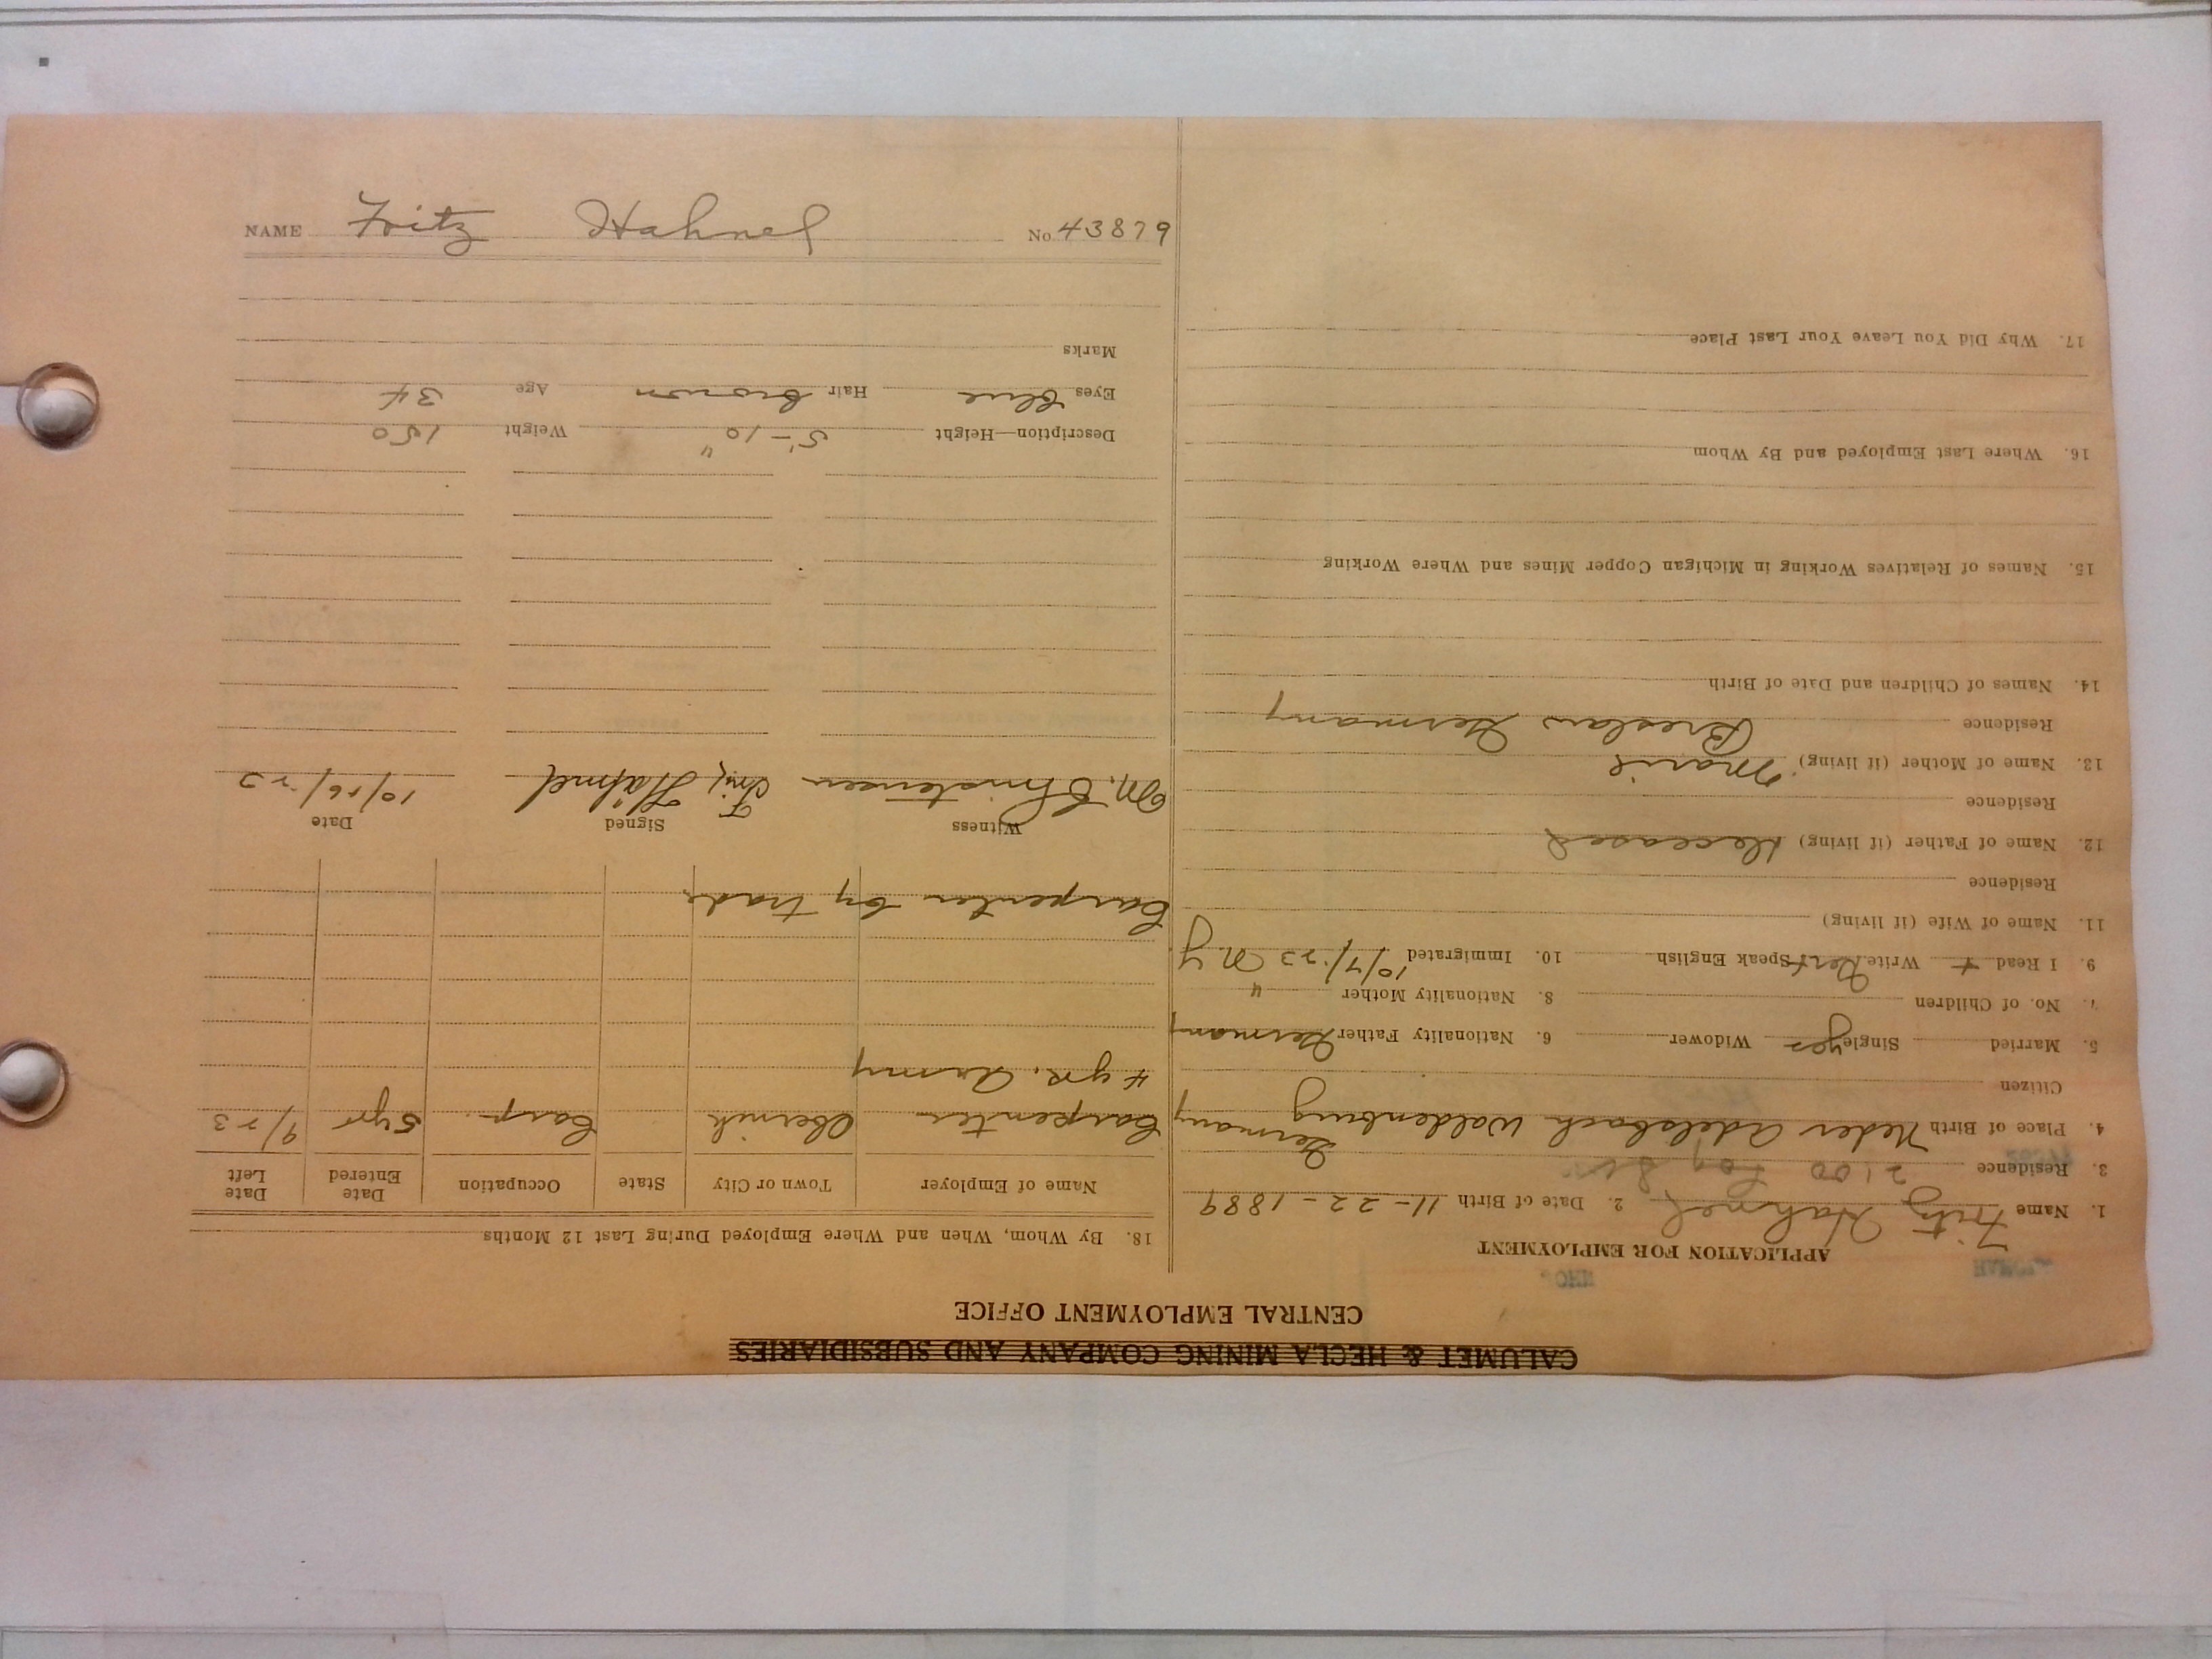 NAME Fritz Hahnel No. 43879
CALUMET & HECLA MINING COMPANY AND SUBSIDIARIES
CENTRAL EMPLOYMENT OFFICE
APPLICATION FOR EMPLOYMENT
1. Name Fritz Hahnel 2. Date of Birth 11-22-1889
3. Residence 2100 Log St. Germany
4. Place of Birth Neder Adelsbach Waldenburg
Citizen
5. Married Single yes Widower 6. Nationality Father German
7. No. of Children 8. Nationality Mother "
9. I Read + Write Germ Speak English 10. Immigrated 10/7/23 N.Y.
11. Name of Wife (if living)
Residence
12. Name of Father (if living) Deceased
Residence
13. Name of Mother (if living) Marie
Residence Breslau Germany
14. Names of Children and Date of Birth
15. Names of Relatives Working in Michigan Copper Mines and Where Working
16. Where Last Employed and By Whom
17. Why Did You Leave Your Last Place
18. By Whom, When and Where Employed During Last 12 Months
Name of Employer Town or City State Occupation Date Entered Date Left
Carpenter Obernik Carp. 5 yr 9/23
4 yr. Army
Carpenter by trade
Witness Signed Date
M. Christensen Fritz Hähnel 10/26/23
Description—Height 5'-10" Weight 150
Eyes blue Hair brown Age 34
Marks